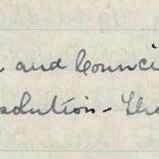 and Counci
solution - Tha